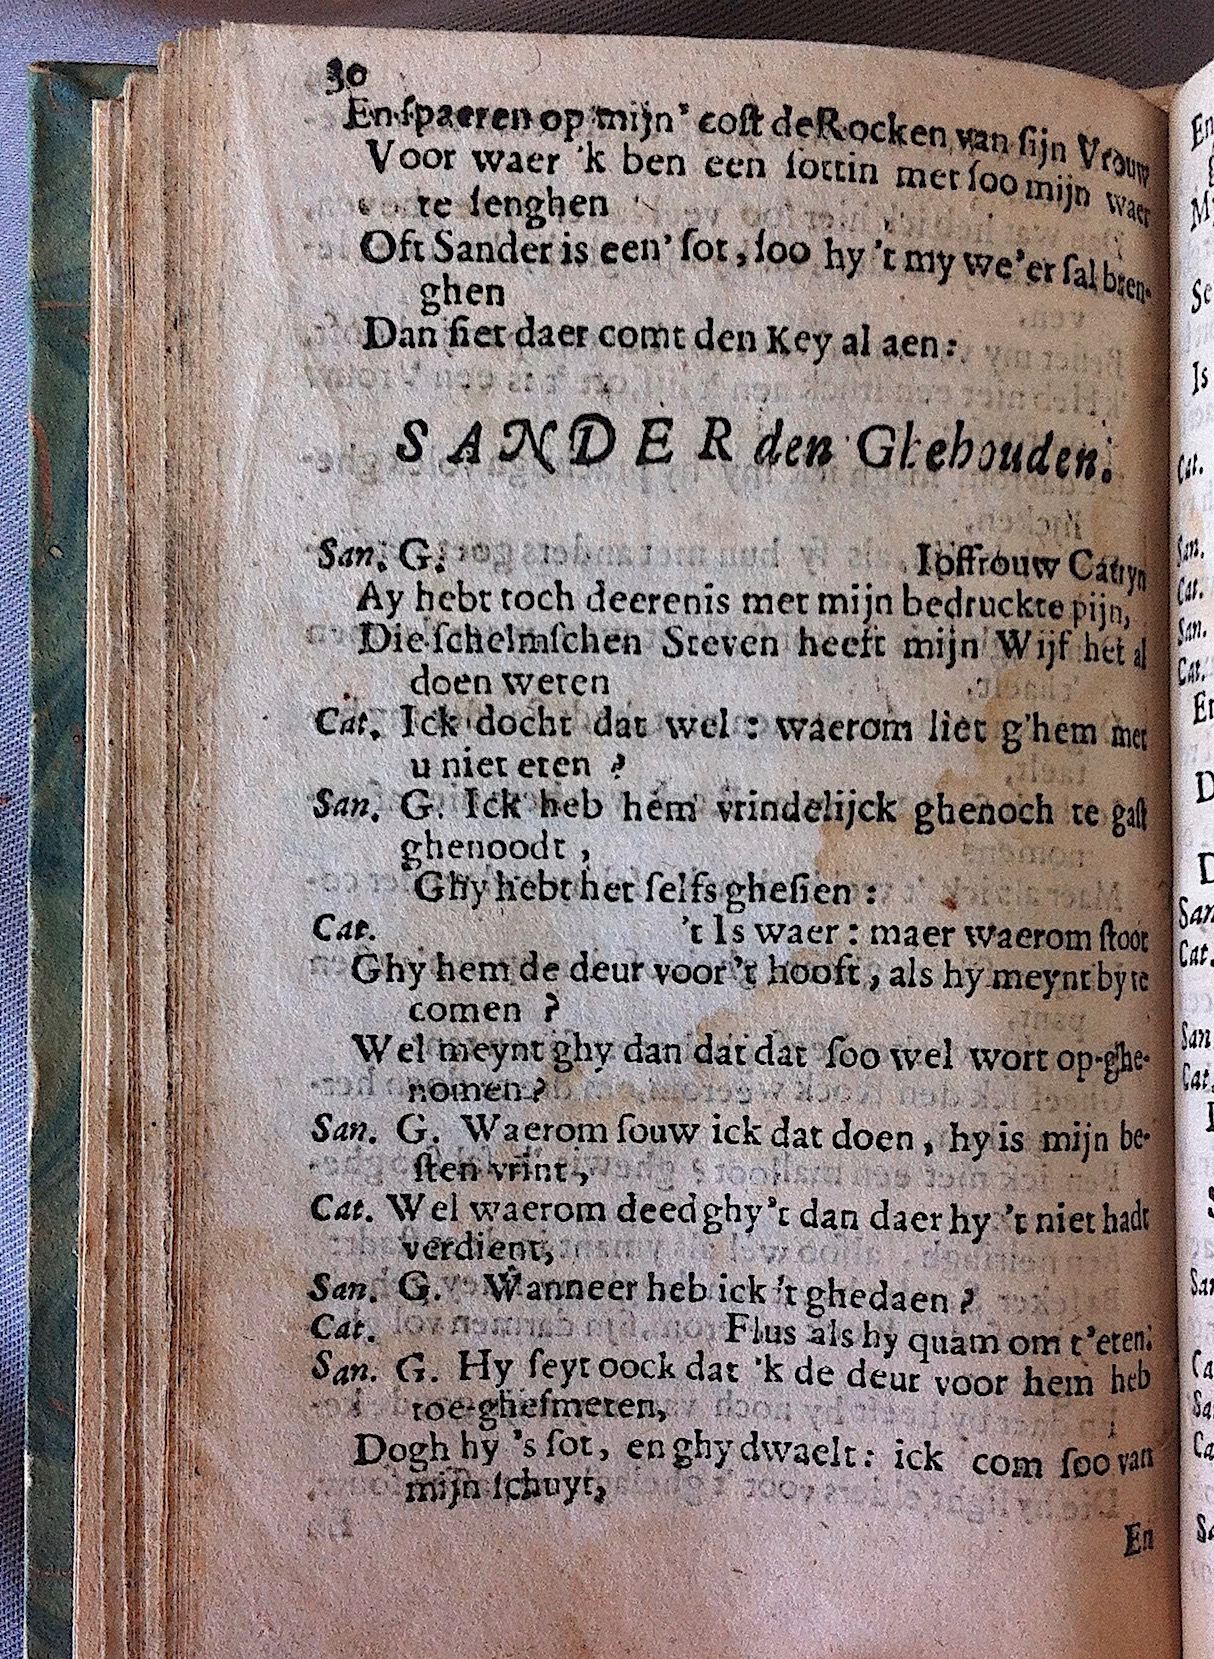 30
En spaeren op mijn' cost de Rocken van sijn Vrouw
Voor waer 'k ben een sottin met soo mijn waer
te lenghen
Oft Sander is een' sot, soo hy 't my we'er sal bren-
ghen
Dan siet daer comt den Key al aen:
SANDER den Ghehouden.
San. G. Ioffrouw Catryn
Ay hebt toch deerenis met mijn bedruckte pijn,
Die schelmschen Steven heeft mijn Wijf het al
doen weten
Cat. Ick docht dat wel : waerom liet g'hem met
u niet eten ?
San. G. Ick heb hem vrindelijck ghenoch te gast
ghenoodt,
Ghy hebt het selfs ghesien :
Cat. 't Is waer : maer waerom stoot
Ghy hem de deur voor 't hooft, als hy meynt by te
comen ?
Wel meynt ghy dan dat dat soo wel wort op-ghe-
nomen ?
San. G. Waerom souw ick dat doen, hy is mijn be-
sten vrint,
Cat. Wel waerom deed ghy 't dan daer hy 't niet hadt
verdient,
San. G. Wanneer heb ick 't ghedaen ?
Cat. Flus als hy quam om t'eten.
San. G. Hy seyt oock dat 'k de deur voor hem heb
toe-ghesmeten,
Dogh hy 's sot, en ghy dwaelt : ick com soo van
mijn schuyt,
En